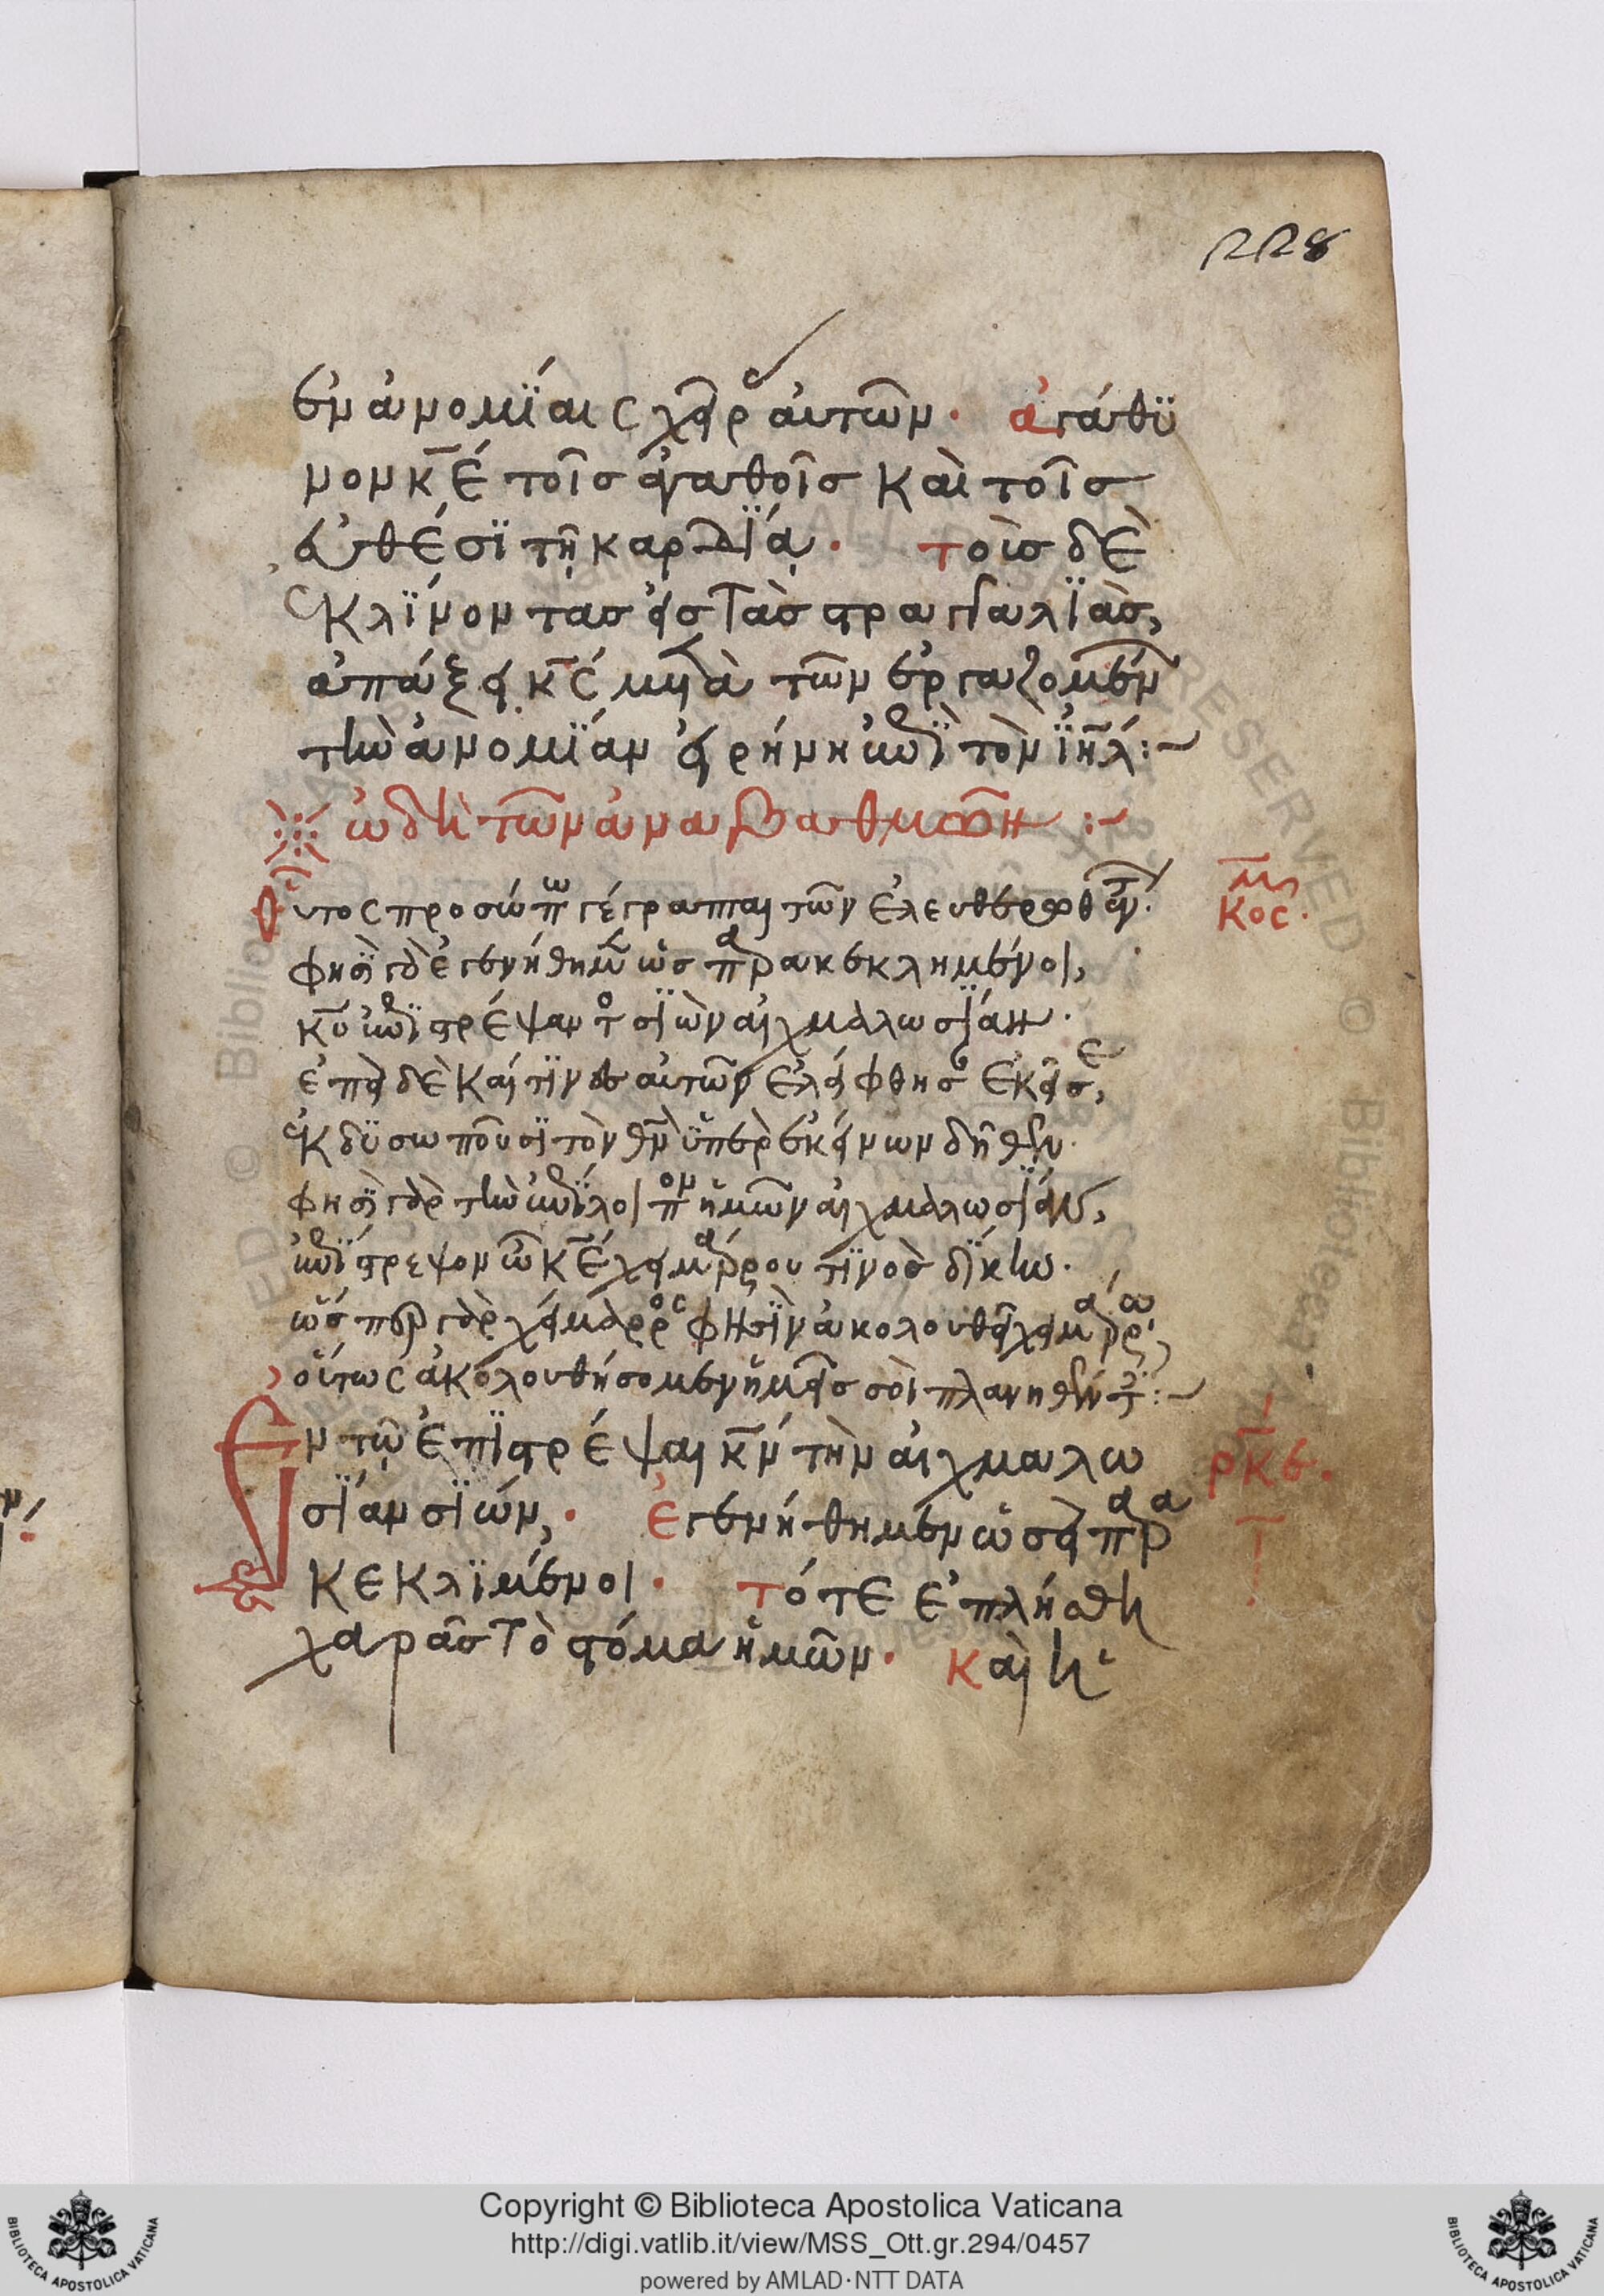 228
ἐν ἀνομίαις χεῖρας αὐτῶν· ἀγάθυ
νον κ̅ε̅ τοῖς ἀγαθοῖς καὶ τοῖς
εὐθέσι τῇ καρδίᾳ· τοὺς δὲ
ἐκλίνοντας εἰς τὰς στραγγαλιὰς,
ἀπάξει κ̅ς̅ μετὰ τῶν ἐργαζομένων
τὴν ἀνομίαν εἰρήνη ἐπὶ τὸν ἰη̅λ̅:~
ὠδὴ τῶν ἀναβαθμῶν :~
Οὗτος προσώπω γέγραπται τῶν ἐλευθερωθέντων·
φησὶ γὰρ ἐγενήθημεν ὡς παρακεκλημένοι,
κ̅υ̅ ἐπιστρέψαντος σιὼν αἰχμαλωσίαν·
ἐπεὶ δὲ καί τινες αὐτῶν ἐλείφθησαν ἐκεῖσε,
ἐκδυσωποῦσι τὸν θ̅ν̅ ὑπὲρ ἐκείνων
φησὶ γὰρ τὴν ἐπίλοιπον ἡμῶν αἰχμαλωσίαν,
ἐπίστρεψον ὦ κ̅ε̅ χειμάρρου τινὸς δίκην·
ὥσπερ γὰρ χείμαρρος φησὶν ἀκολουθεῖ χειμάρρω
οὕτως ἀκολουθήσομεν ἡμεῖς σοὶ
κος·
Ἐν τῷ ἐπιστρέψαι κ̅ν̅ τὴν αἰχμαλω
σίαν σιών,· ἐγενήθημεν ὡσεὶ παρα
κεκλιμένοι· τότε ἐπλήσθη
χαρᾶς τὸ στόμα ἡμῶν· καὶ ἡ
ρκε·
Copyright © Biblioteca Apostolica Vaticana
http://digi.vatlib.it/view/MSS_Ott.gr.294/0457
powered by AMLAD·NTT DATA
BIBLIOTECA APOSTOLICA VATICANA
BIBLIOTECA APOSTOLICA VATICANA